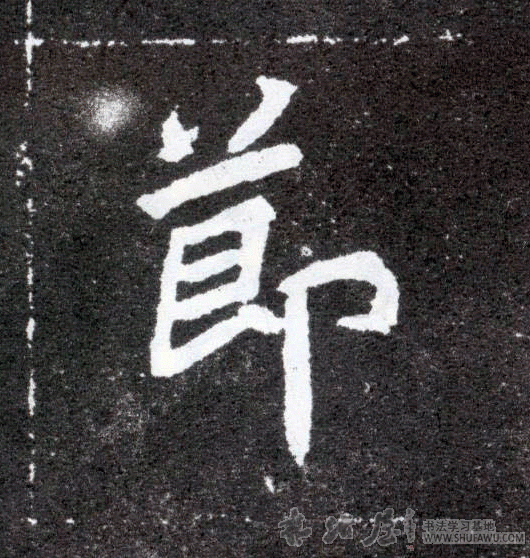 節
书法学习基地
WWW.SHUFAWU.COM